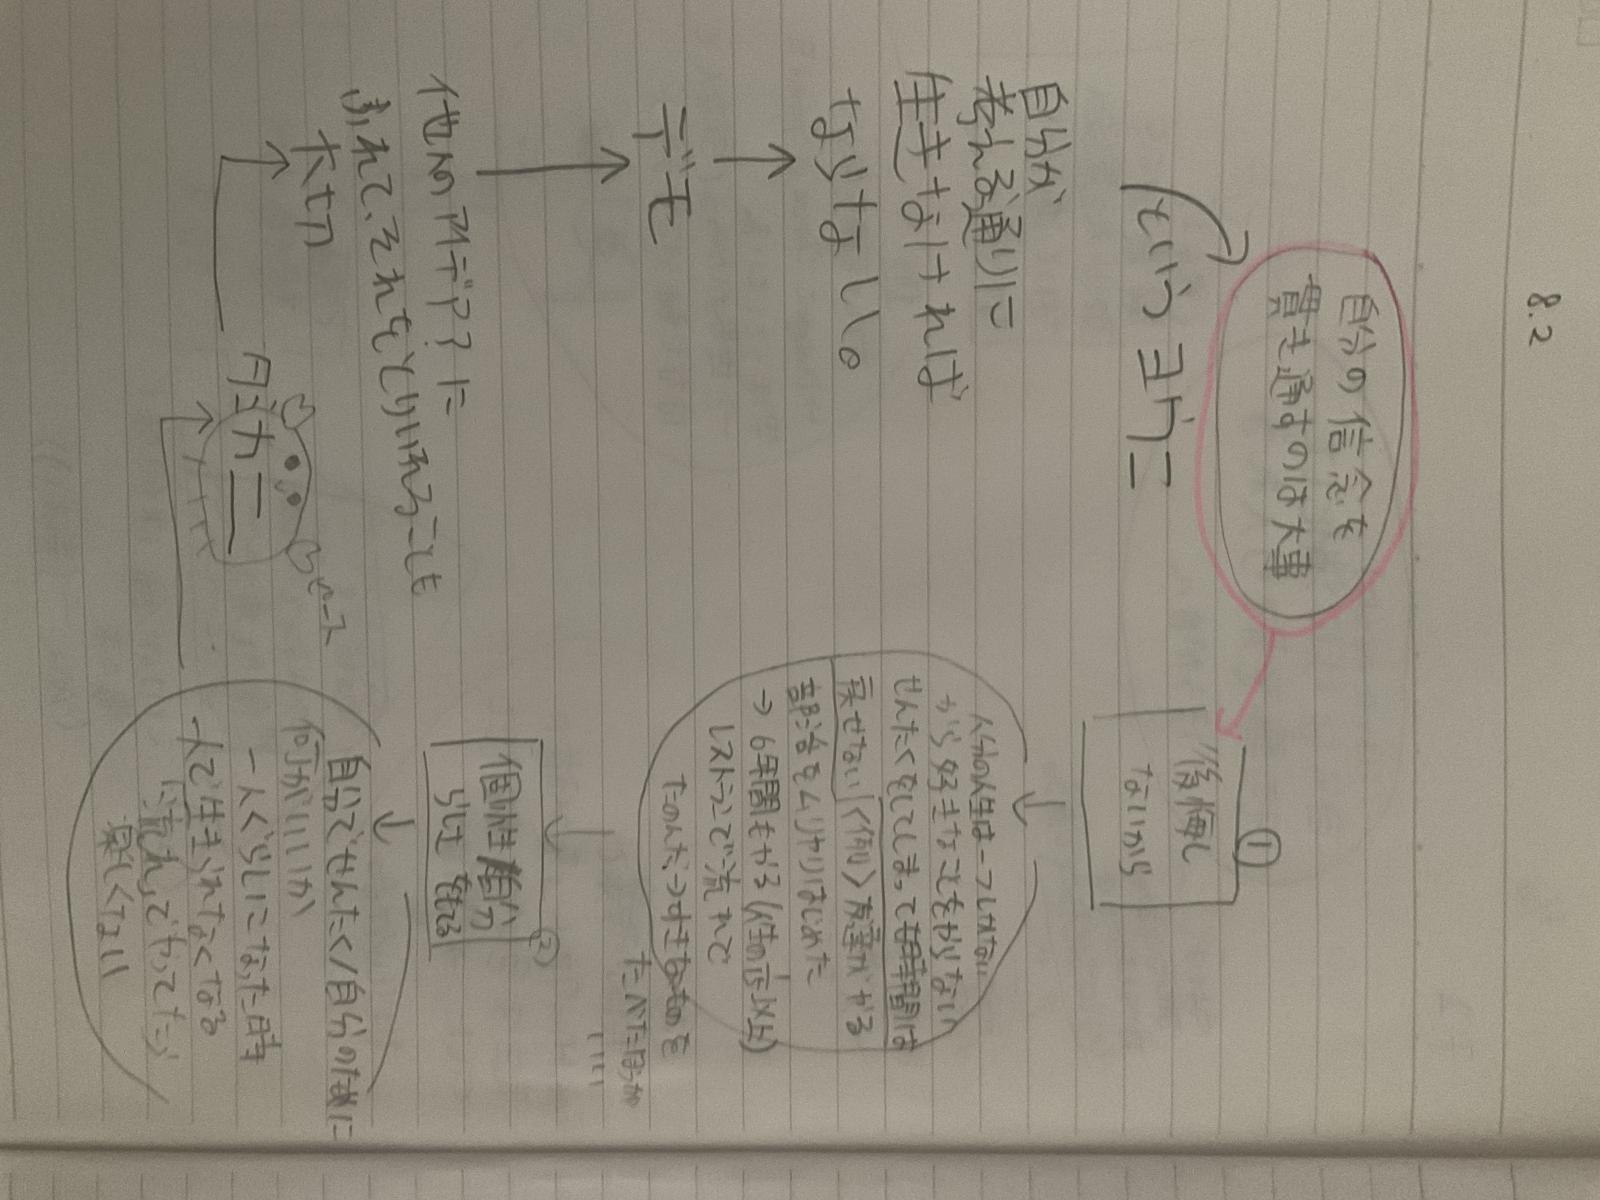 8.2
自分の信念を
貫き通すのは大事
というヨウニ
自分が
考える通りに
生きなければ
ならない。
デモ
他のアイデア?に
ふれて、それをとりいれることも
大切
①
後悔し
ないから
人分の人生は一つしかない
から好きなことをやらない
せんたくをしてしまって時間は
戻せない！<例>友達がやる
部活をムリやりはじめた
→6年間もやる(人生の 以上)
レストランで流れて
たのんだ→すきなものを
たべたほうが
②
個性自分
らしさ
自分でせんたく/自分のために
何がいいか
一人ぐらしになった時
人で生きれなくなる
流れでやってたら
楽しくない